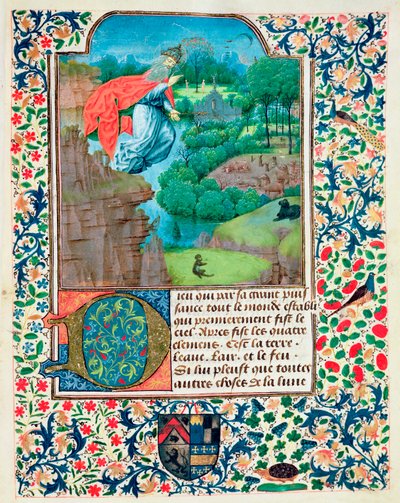 Dieu qui par sa grant puis
sance tout le monde establi
qui premierement fist le
ciel. Apres fist les quatre
elemens. Cest la terre.
Leaue. Lair. et le feu.
Si lui pleust que toutes
autres choses de la lune